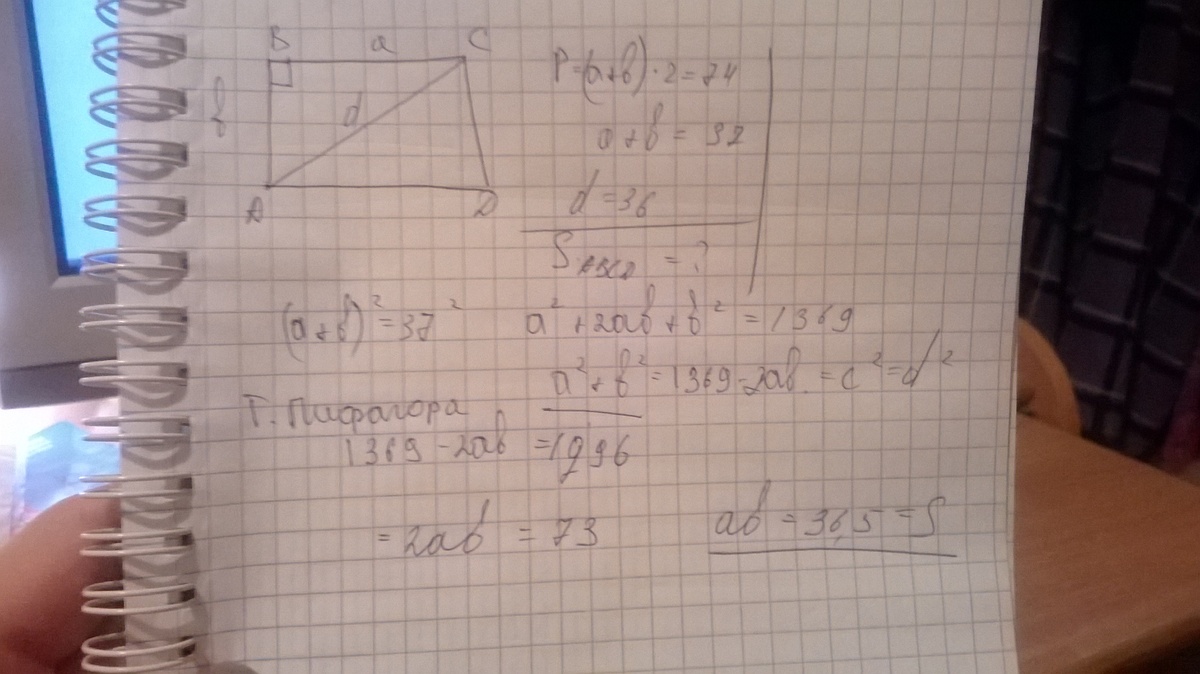 B a C
b d
A D
P=(a+b)·2=74
a+b = 37
d=36
S ABCD = ?
(a+b)²=37² a²+2ab+b²=1369
a²+b²=1369-2ab=c²=d²
Т. Пифагора
1369-2ab =1296
= 2ab = 73 ab = 36,5 = S